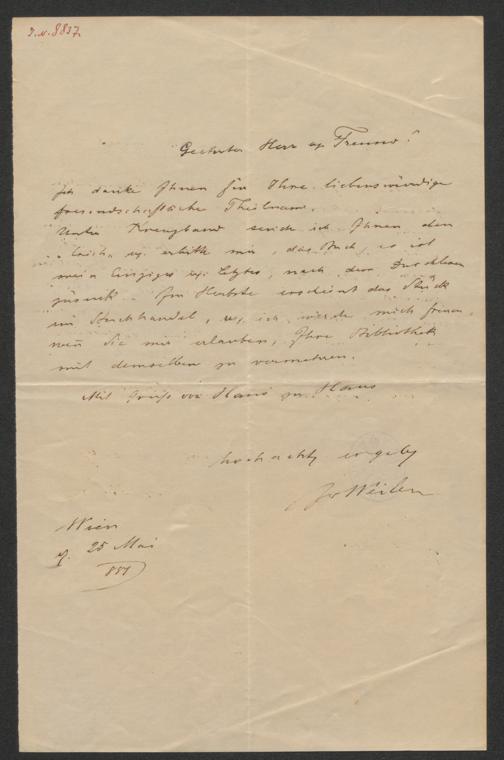 I.N. 8837
Geehrter Herr u. Freund!
Ich danke Ihnen für Ihre liebenswürdige
freundschaftliche Theilnahme.
Unter Kreuzband sende ich Ihnen den
u. erbitte mir, das Buch, es ist
mein einziges u. letztes, nach dem Durchlesen
zurück. Im Herbste erscheint das Stück
im Buchhandel, u. ich werde mich freuen,
wenn Sie mir erlauben, Ihre Bibliothek
mit demselben zu vermehren.
Mit Gruß von Haus zu Haus
hochachtg ergeb
Jos Weilen
Wien
25 Mai
881